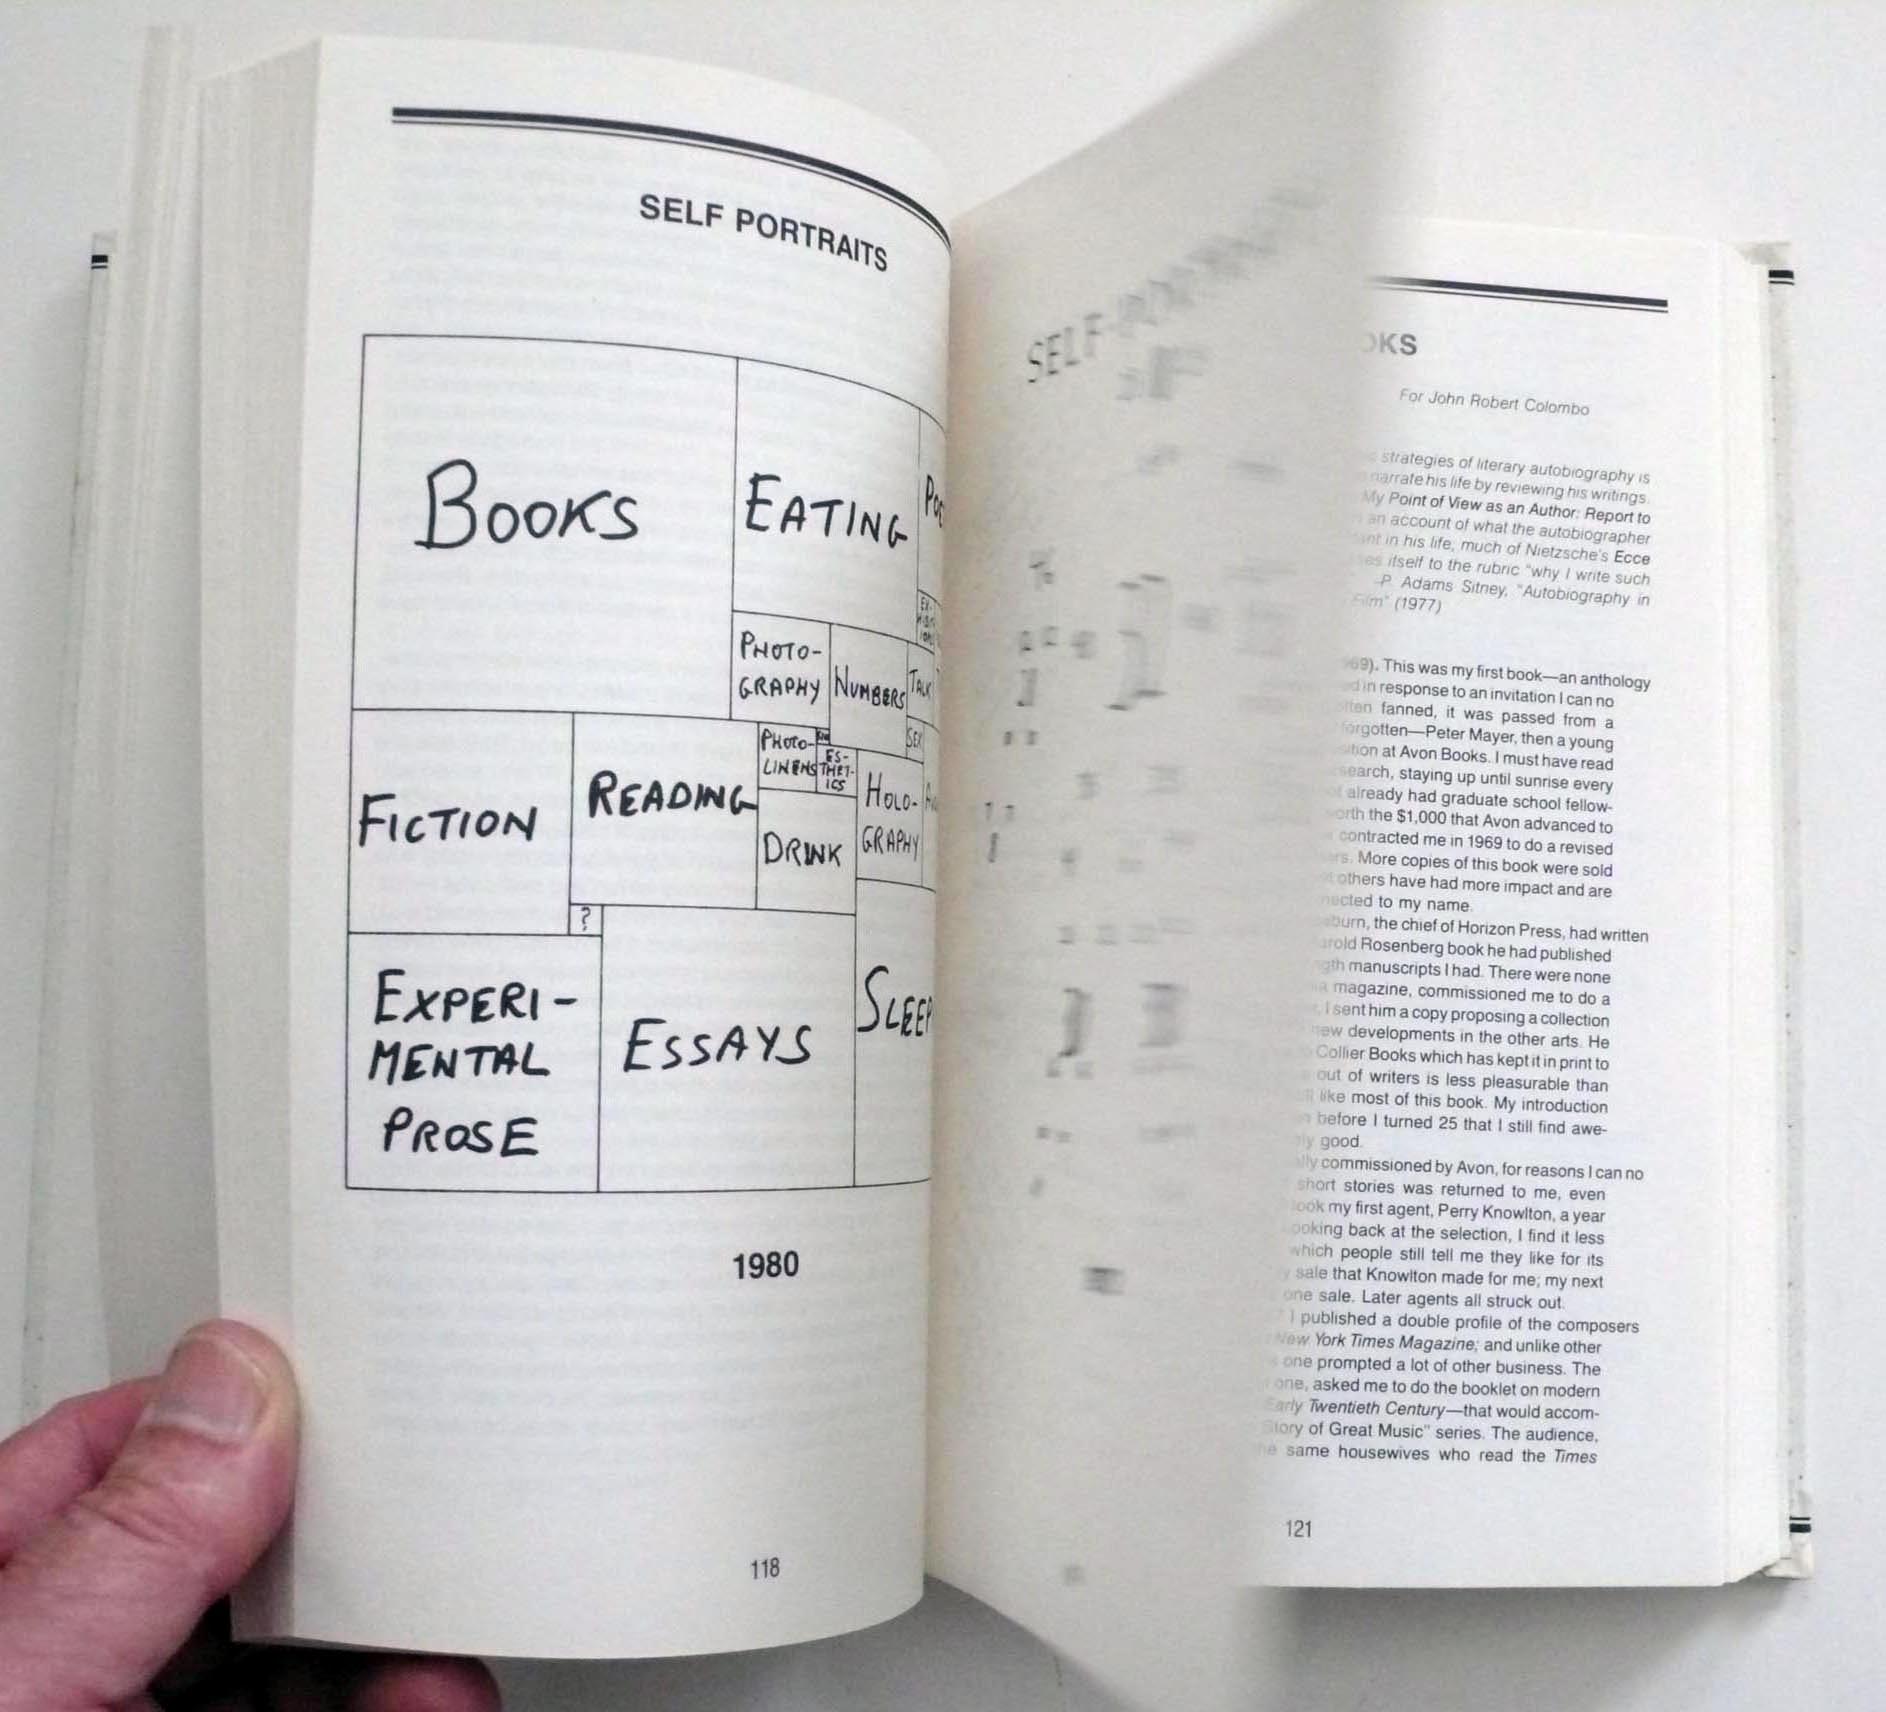 SELF PORTRAITS
BOOKS
EATING
PHOTO-
GRAPHY
NUMBERS
TALK
SEX
FICTION
READING
PHOTO-
LINENS
ES-
THET-
ICS
DRINK
HOLO-
GRAPHY
?
EXPERI-
MENTAL
PROSE
ESSAYS
SLEEP
1980
118
SELF
For John Robert Colombo
strategies of literary autobiography is
narrate his life by reviewing his writings.
My Point of View as an Author: Report to
an account of what the autobiographer
in his life, much of Nietzsche's Ecce
itself to the rubric "why I write such
-P. Adams Sitney, "Autobiography in
Film" (1977)
69). This was my first book—an anthology
in response to an invitation I can no
fanned, it was passed from a
forgotten—Peter Mayer, then a young
at Avon Books. I must have read
search, staying up until sunrise every
already had graduate school fellow-
worth the $1,000 that Avon advanced to
contracted me in 1969 to do a revised
More copies of this book were sold
others have had more impact and are
to my name.
the chief of Horizon Press, had written
Rosenberg book he had published
manuscripts I had. There were none
magazine, commissioned me to do a
I sent him a copy proposing a collection
new developments in the other arts. He
Collier Books which has kept it in print to
out of writers is less pleasurable than
like most of this book. My introduction
before I turned 25 that I still find awe-
good.
commissioned by Avon, for reasons I can no
short stories was returned to me, even
took my first agent, Perry Knowlton, a year
looking back at the selection, I find it less
which people still tell me they like for its
sale that Knowlton made for me; my next
one sale. Later agents all struck out.
I published a double profile of the composers
New York Times Magazine; and unlike other
one prompted a lot of other business. The
one, asked me to do the booklet on modern
Early Twentieth Century—that would accom-
Story of Great Music" series. The audience,
same housewives who read the Times
121